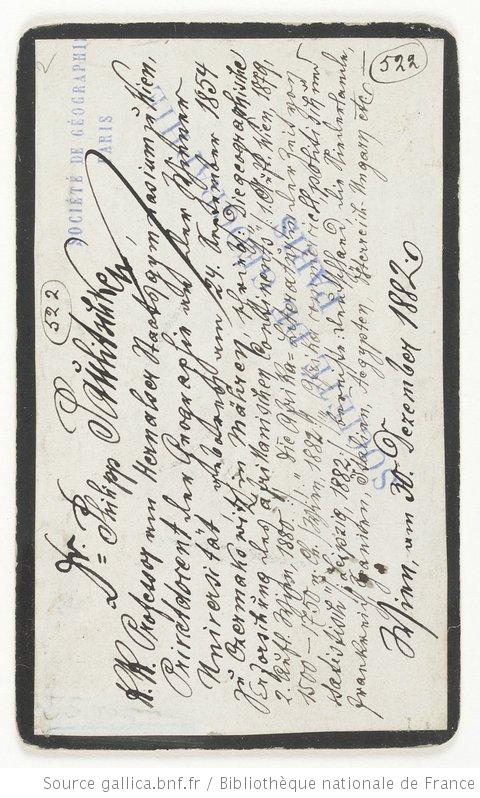 522
522
SOCIÉTÉ DE GÉOGRAPHIE
PARIS
SOCIÉTÉ DE GÉOGRAPHIE
PARIS
Dr. Philipp Paulitschke,
K. K. Professor am Hernalser Staatsgymnasium zu Wien,
Privatdocent der Geographie an der Wiener
Universität, geboren am 24. September 1854
zu Czermakowitz in Mähren, schrieb: Die geographische
Erforschung des afrikanischen Continents /: 1. Aufl. Wien, 1879,
2. Aufl. Wien, 1880 :/ "Die Afrika-Literatur in der Zeit von
1500–1750 n. Ch." /: Wien, 1882 :/
Leipzig 1882 :/ bereiste: Deutschland, die Niederlande,
Frankreich, Italien, Aegypten, Österreich-Ungarn etc.
Wien, am 30. Dezember 1882.
Source gallica.bnf.fr / Bibliothèque nationale de France